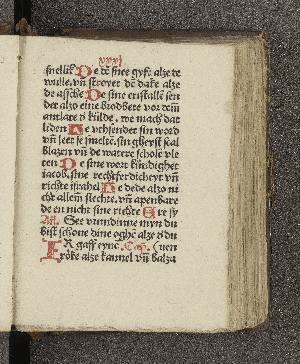 xxxj
snellikē De dē snee gyft alze te
wulle. vn̄ stroyet dē dake alze
de assche De sine cristalle sen
det alzo eine brodbete vor dem
antlate d' külde. we mach dat
liden De vthsendet sin word
vn̄ leet se smeltē. sin gheyst scal
blazen vn̄ de watere scholē vle
ten De sine wort kündighet
iacob. sine rechtferdicheyt vn̄
richte israhel He dede alzo ni
cht allem slechte. vn̄ apenbare
de en nicht sine richte Ere sy
Añ. See vrundinne myn du
bist schone dine oghē alze d' du
ER gaff eyne. Cap. (uen
roke alze kannel vn̄ balza